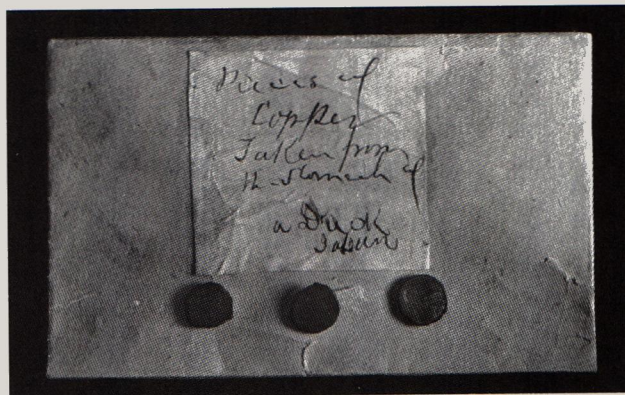 Pieces of
Copper
Taken from
th stomach of
a Duck